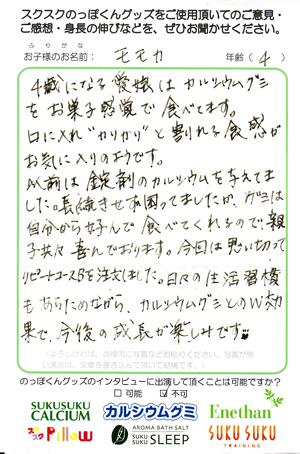 スクスクのっぽくんグッズをご使用頂いてのご意見・
ご感想・身長の伸びなどを、ぜひお聞かせください。
ふりがな
お子様のお名前： モモカ 年齢（ 4 ）
4歳になる愛娘は カルシウムグミ
をお菓子感覚で食べてます。
口に入れ"カリカリ"と割れる食感が
お気に入りのようです。
以前は 錠剤のカルシウムを与えてま
した。長続きせず困ってましたが、グミは
自分から好んで食べてくれるので、親
子共々喜んでおります。今回は思い切って
リピートコースBを注文しました。日々の生活習慣
もあらためながら、カルシウムグミとのW効
果で、今後の成長が楽しみです
（よろしければ、点線内に写真などお貼りください。写真が無
い場合は、文章を書き込んで頂いて結構です。）
のっぽくんグッズのインタビューに出演して頂くことは可能ですか？
□ 可能 ☑ 不可
SUKUSUKU CALCIUM
カルシウムグミ
Enethan
スクスク Pillow
AROMA BATH SALT
SUKU SUKU SLEEP
SUKU SUKU
TRAINING